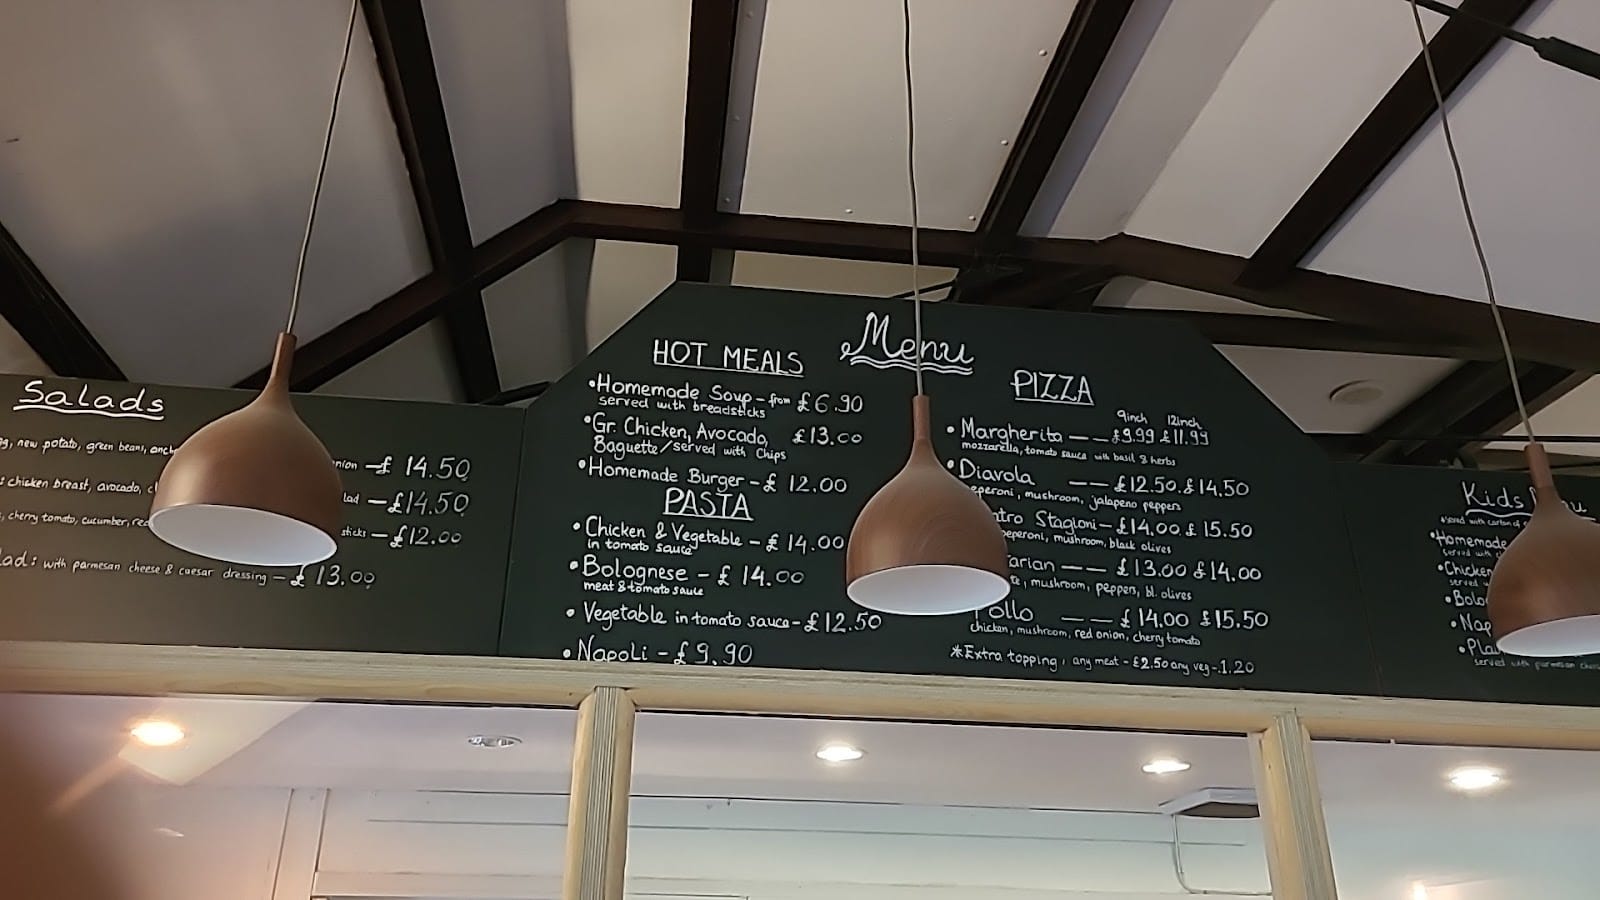 Salads
new potato, green beans,
nion - £ 14.50
: chicken breast, avocado,
lad - £14.50
, cherry tomato, cucumber, red
sticks - £12.00
lad: with parmesan cheese & caesar dressing - £ 13.00
Menu
HOT MEALS
• Homemade Soup - from £6.90
served with breadsticks
• Gr. Chicken, Avocado, £13.00
Baguette/served with Chips
• Homemade Burger - £ 12.00
PASTA
• Chicken & Vegetable - £ 14.00
in tomato sauce
• Bolognese - £ 14.00
meat & tomato sauce
• Vegetable in tomato sauce - £12.50
• Napoli - £9.90
PIZZA
9inch 12inch
• Margherita — — £9.99 £11.99
mozzarella, tomato sauce with basil & herbs
• Diavola — — £12.50 £14.50
peperoni, mushroom, jalapeno peppers
tro Stagioni - £14.00 £ 15.50
peperoni, mushroom, black olives
tarian — — £13.00 £14.00
, mushroom, peppers, bl. olives
Pollo — — £ 14.00 £15.50
chicken, mushroom, red onion, cherry tomato
*Extra topping, any meat - £2.50 any veg - 1.20
Kids
• Homemade
served with
• Chicken
served
• Bolo
• Nap
• Pla
served with parmesan